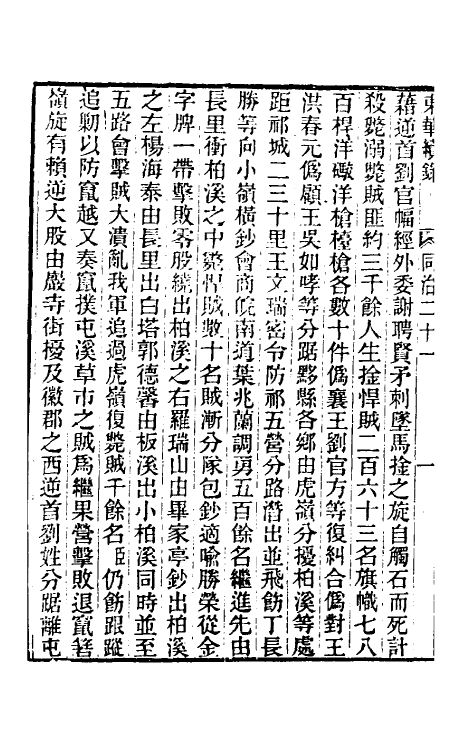 東華續錄　同治二十一　一
藉逆首劉官幅經外委謝聘賢矛刺墜馬捦之旋自觸石而死計
殺斃溺斃賊匪約三千餘人生捦悍賊二百六十三名旗幟七八
百桿洋礮洋槍檯槍各數十件僞襄王劉官方等復糾合僞對王
洪春元僞顧王吳如孝等分踞黟縣各鄉由虎嶺分擾柏溪等處
距祁城二三十里王文瑞密令防祁五營分路潛出並飛飭丁長
勝等向小嶺橫鈔會商皖南道葉兆蘭調勇五百餘名繼進先由
長里衝柏溪之中斃悍賊數十名賊漸分隊包鈔適喻勝榮從金
字牌一帶擊敗零股繞出柏溪之右羅瑞山由畢家亭鈔出柏溪
之左楊海泰由長里出白塔郭德馨由板溪出小柏溪同時並至
五路會擊賊大潰亂我軍追過虎嶺復斃賊千餘名臣仍飭跟蹤
追勦以防竄越又奏竄撲屯溪草市之賊爲繼果營擊敗退竄箬
嶺旋有賴逆大股由嚴寺街擾及徽郡之西逆首劉姓分踞離屯